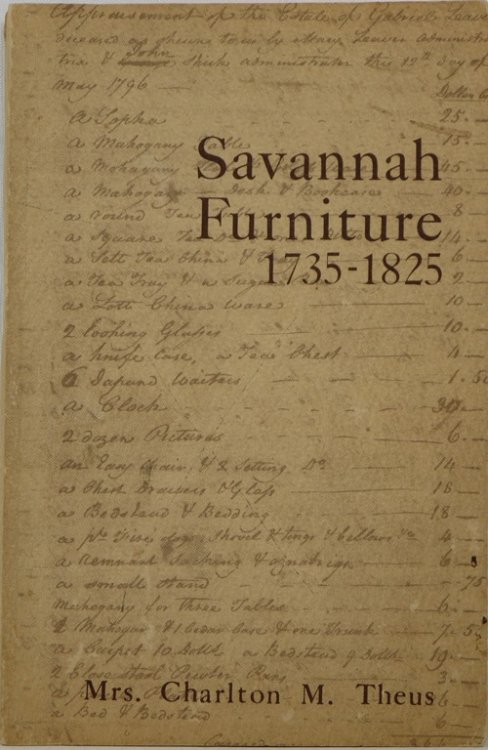 Appraisement of the Estate of Gabriel Leaver
deceased as shewn to us by Mary Leaver Administra
trix & John Shick administrator this 12th day of
May 1796 —
Dollar
a Sopha 25 —
a Mahogany Table 15 —
Savannah
a Mahogany 45 —
a Mahogany Desk & Bookcase 40 —
Furniture
a round Tea 8
a Square Tea 14 —
a Sett Tea China & 6
1735-1825
a Tea Tray & a Sugar 2
a Lott China Ware 10 —
2 looking Glasses 10 —
a knife Case, a Tea Chest 4 —
6 Japand Waiters 1.50
a Clock 30 —
2 dozen Pictures 6 —
an Easy Chair & 2 Setting Do 14 —
a Chest Drawers & Glass 18 —
a Bedstead & Bedding 18 —
a pr Fire dogs Shovel & tongs & bellows 4 —
a Remnant & 6 —
a small Stand 75
Mahogany for three Tables 6 —
2 Mahogany & 1 Cedar Case & one Trunk 7.5
a Carpet 10 Dolls a Bedstead 9 Dolls 19 —
2 Close stool Pewter Pans 3 —
Mrs. Charlton M. Theus
a 6
a Bed & Bedstead 6